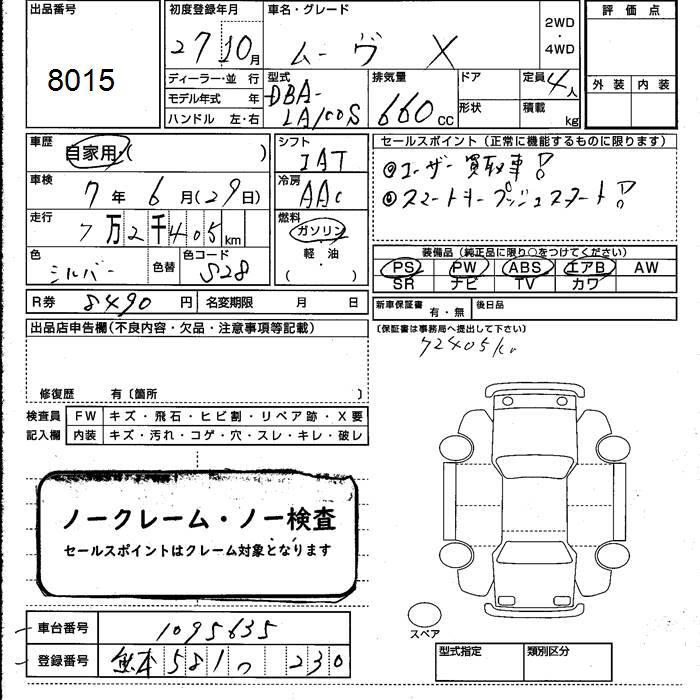 出品番号
8015
初度登録年月
27 10月
車名・グレード
ムーヴ X
2WD
・
4WD
評価点
外装 内装
ディーラー・並 行
モデル年式 年
ハンドル 左・右
型式
DBA-
LA100S
排気量
660cc
ドア
形状
定員 4人
積載 kg
車歴
自家用・( )
車検
7年6月(29日)
走行
7万2千405km
色
シルバー 色替
色コード
S28
シフト
IAT
冷房
AAC
燃料
ガソリン
軽・油
( )
セールスポイント(正常に機能するものに限ります)
◎ユーザー買取車!
◎スマートキープッシュスタート!
装備品(純正品に限り○をつけてください)
PS PW ABS エアB AW
SR ナビ TV カワ
R券 8490円 名変期限 月 日
新車保証書 有・無 後日品
(保証書は事務局へ提出して下さい)
72405km
出品店申告欄(不良内容・欠品・注意事項等記載)
修復歴 有〔箇所 〕
検査員 FW キズ・飛石・ヒビ割・リペア跡・X要
記入欄 内装 キズ・汚れ・コゲ・穴・スレ・キレ・破レ
ノークレーム・ノー検査
セールスポイントはクレーム対象となります
スペア
車台番号 1095635
登録番号 熊本 581 230
型式指定 類別区分